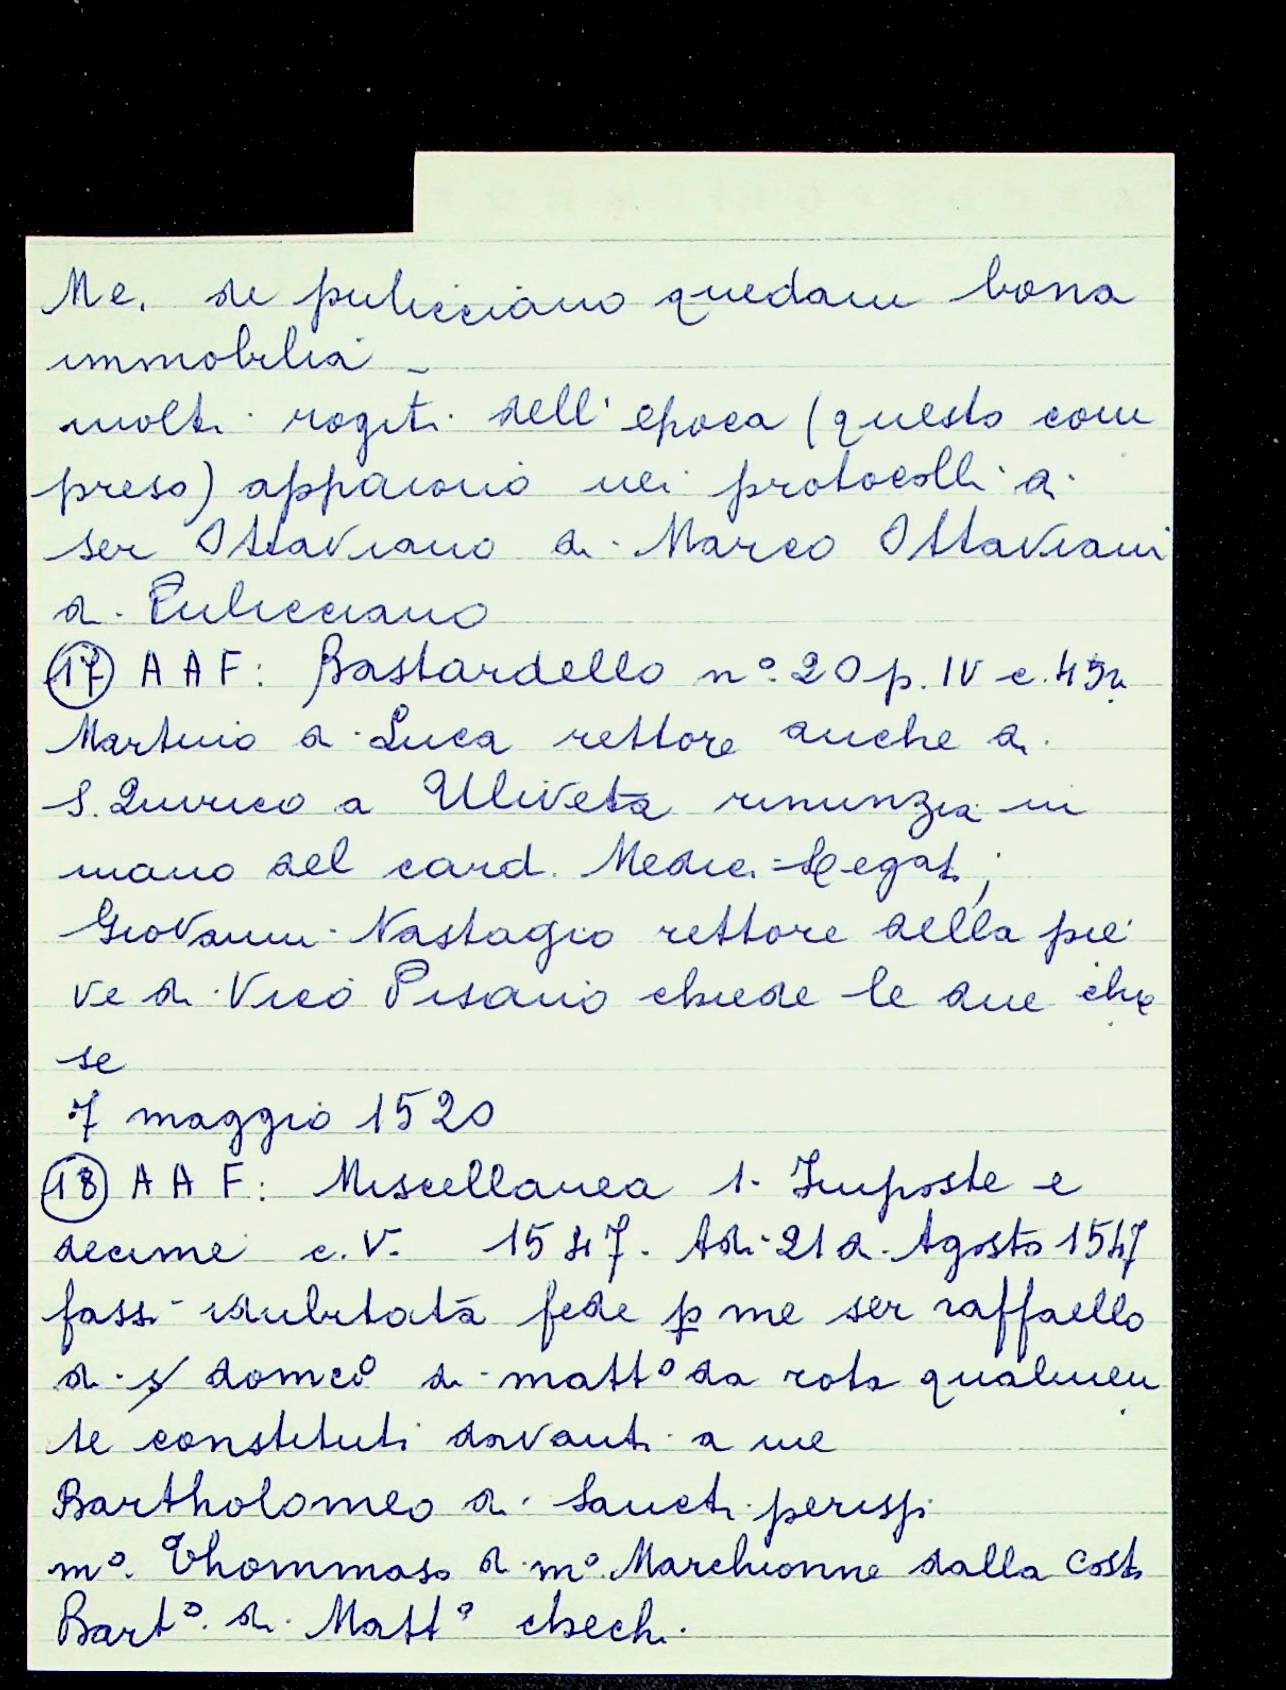 Me. de pulicciano quedam bona
immobilia -
molti rogiti dell'epoca (questo com
preso) appaiono nei protocolli di
ser Ottaviano di Marco Ottaviani
di Pulicciano
17 AAF: Bastardello n° 20 p. IV c.
Martino di Luca rettore anche di
S. Quirico a Uliveta rinunzia in
mano del card. Medici = Legat;
Giovanni Nastagio rettore della pie
ve di Vico Pisano chiede le due chie
se
7 maggio 1520
18 AAF: Miscellanea 1. Imposte e
decime c. V. 1547. Adi 21 di Agosto 1547
fassi idubitata fede p me ser raffaello
di s domco di matto da rota qualmen
te constituti davanti a me
Bartholomeo di Sancti
mo. Thommaso di mo. Marchionne dalla Costa
Barto. di Matto chechi.